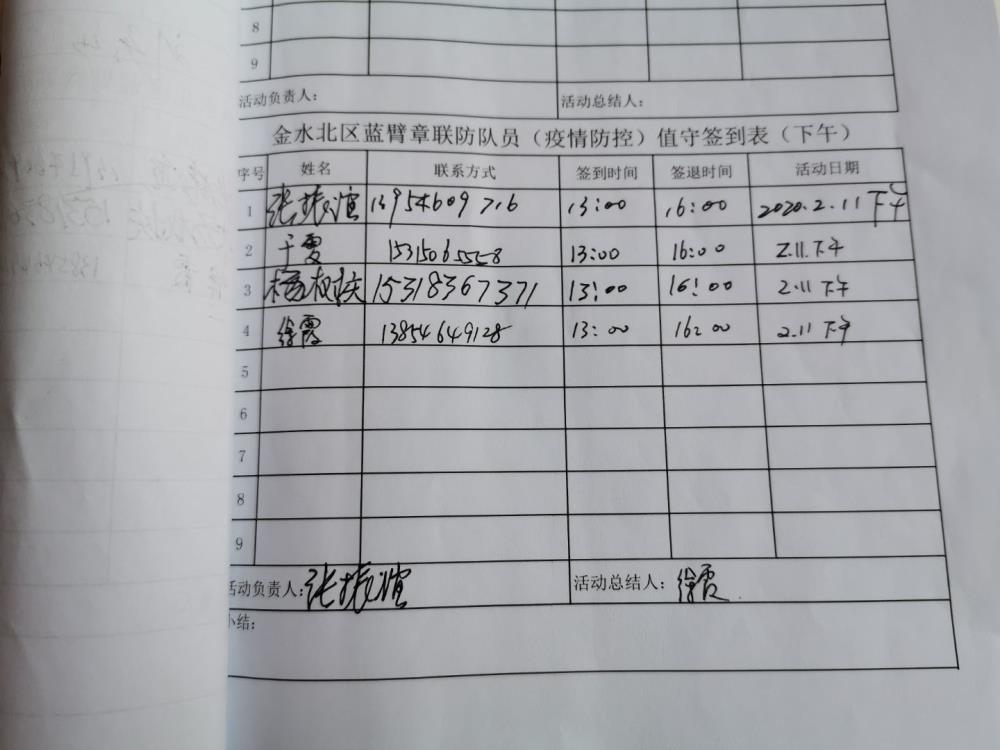 8
9
活动负责人： 活动总结人：
金水北区蓝臂章联防队员（疫情防控）值守签到表（下午）
序号 姓名 联系方式 签到时间 签退时间 活动日期
1 张振 13954609716 13:00 16:00 2020.2.11 下午
2 于霞 15315065558 13:00 16:00 2.11.下午
3 杨 15318367371 13:00 16:00 2.11 下午
4 徐霞 13854649128 13:00 16:00 2.11 下午
5
6
7
8
9
活动负责人：张振 活动总结人：徐霞
小结：